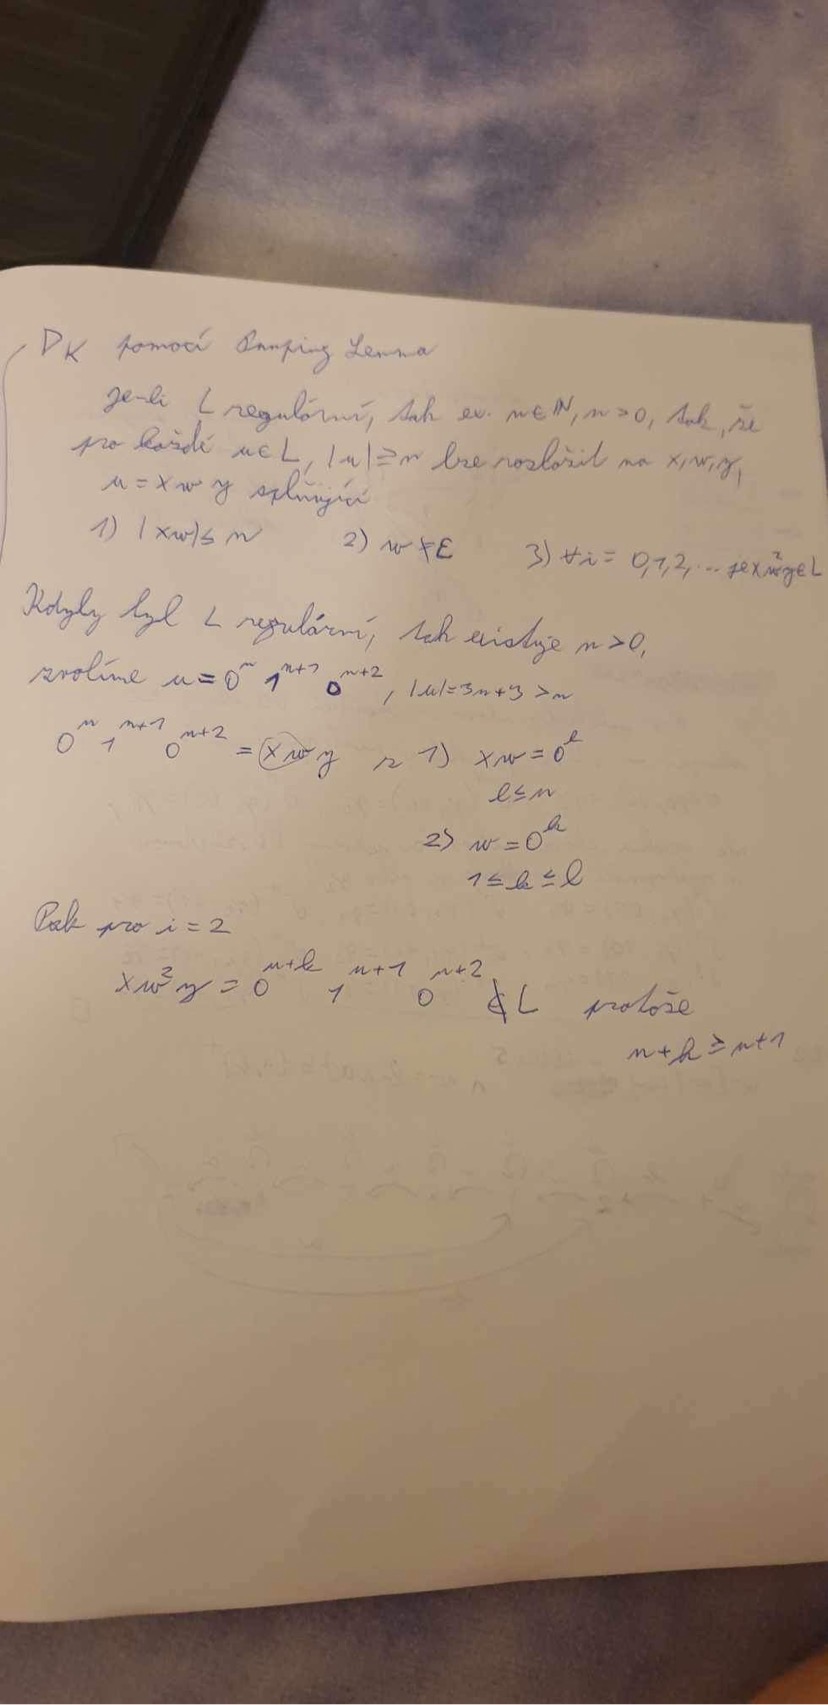 Dk pomocí Pumping Lemma
Je-li L regulární, tak ex. n∈ℕ, n>0, tak, že
pro každé u∈L, |u|≥n lze rozložit na x,w,y,
u = xwy splňující
1) |xw|≤n 2) w≠ε 3) ∀i = 0,1,2,... je xw²y∈L
Kdyby byl L regulární, tak existuje n>0,
zvolíme u = 0ⁿ 1ⁿ⁺¹ 0ⁿ⁺², |u|=3n+3>n
0ⁿ 1ⁿ⁺¹ 0ⁿ⁺² = xwy z 1) xw = 0ˡ
l≤n
2) w = 0ᵏ
1≤k≤l
Pak pro i = 2
xw²y = 0ⁿ⁺ᵏ 1ⁿ⁺¹ 0ⁿ⁺² ∉ L protože
n+k ≥ n+1